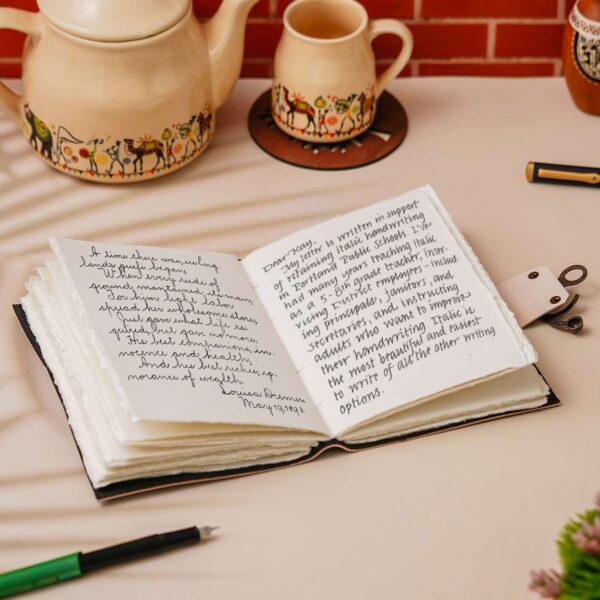 A time there was, ere Eng-
lands griefs began,
When every rude of
ground maintained its man;
For him light labor
spread her wholesome store,
Just gave what life re-
quired, but gave no more:
His best companions, in-
nocence and health,
And his best riches, ig-
norance of wealth.
Louisa
May 19, 1893.
Dear Kay,
My letter is written in support
of retaining italic handwriting
in Portland Public Schools. I've
had many years teaching italic
as a 5-8th grade teacher, inser-
vicing District employees - includ
ing principals, janitors, and
secretaries, and instructing
adults who want to improve
their handwriting. Italic is
the most beautiful and easiest
to write of all the other writing
options.